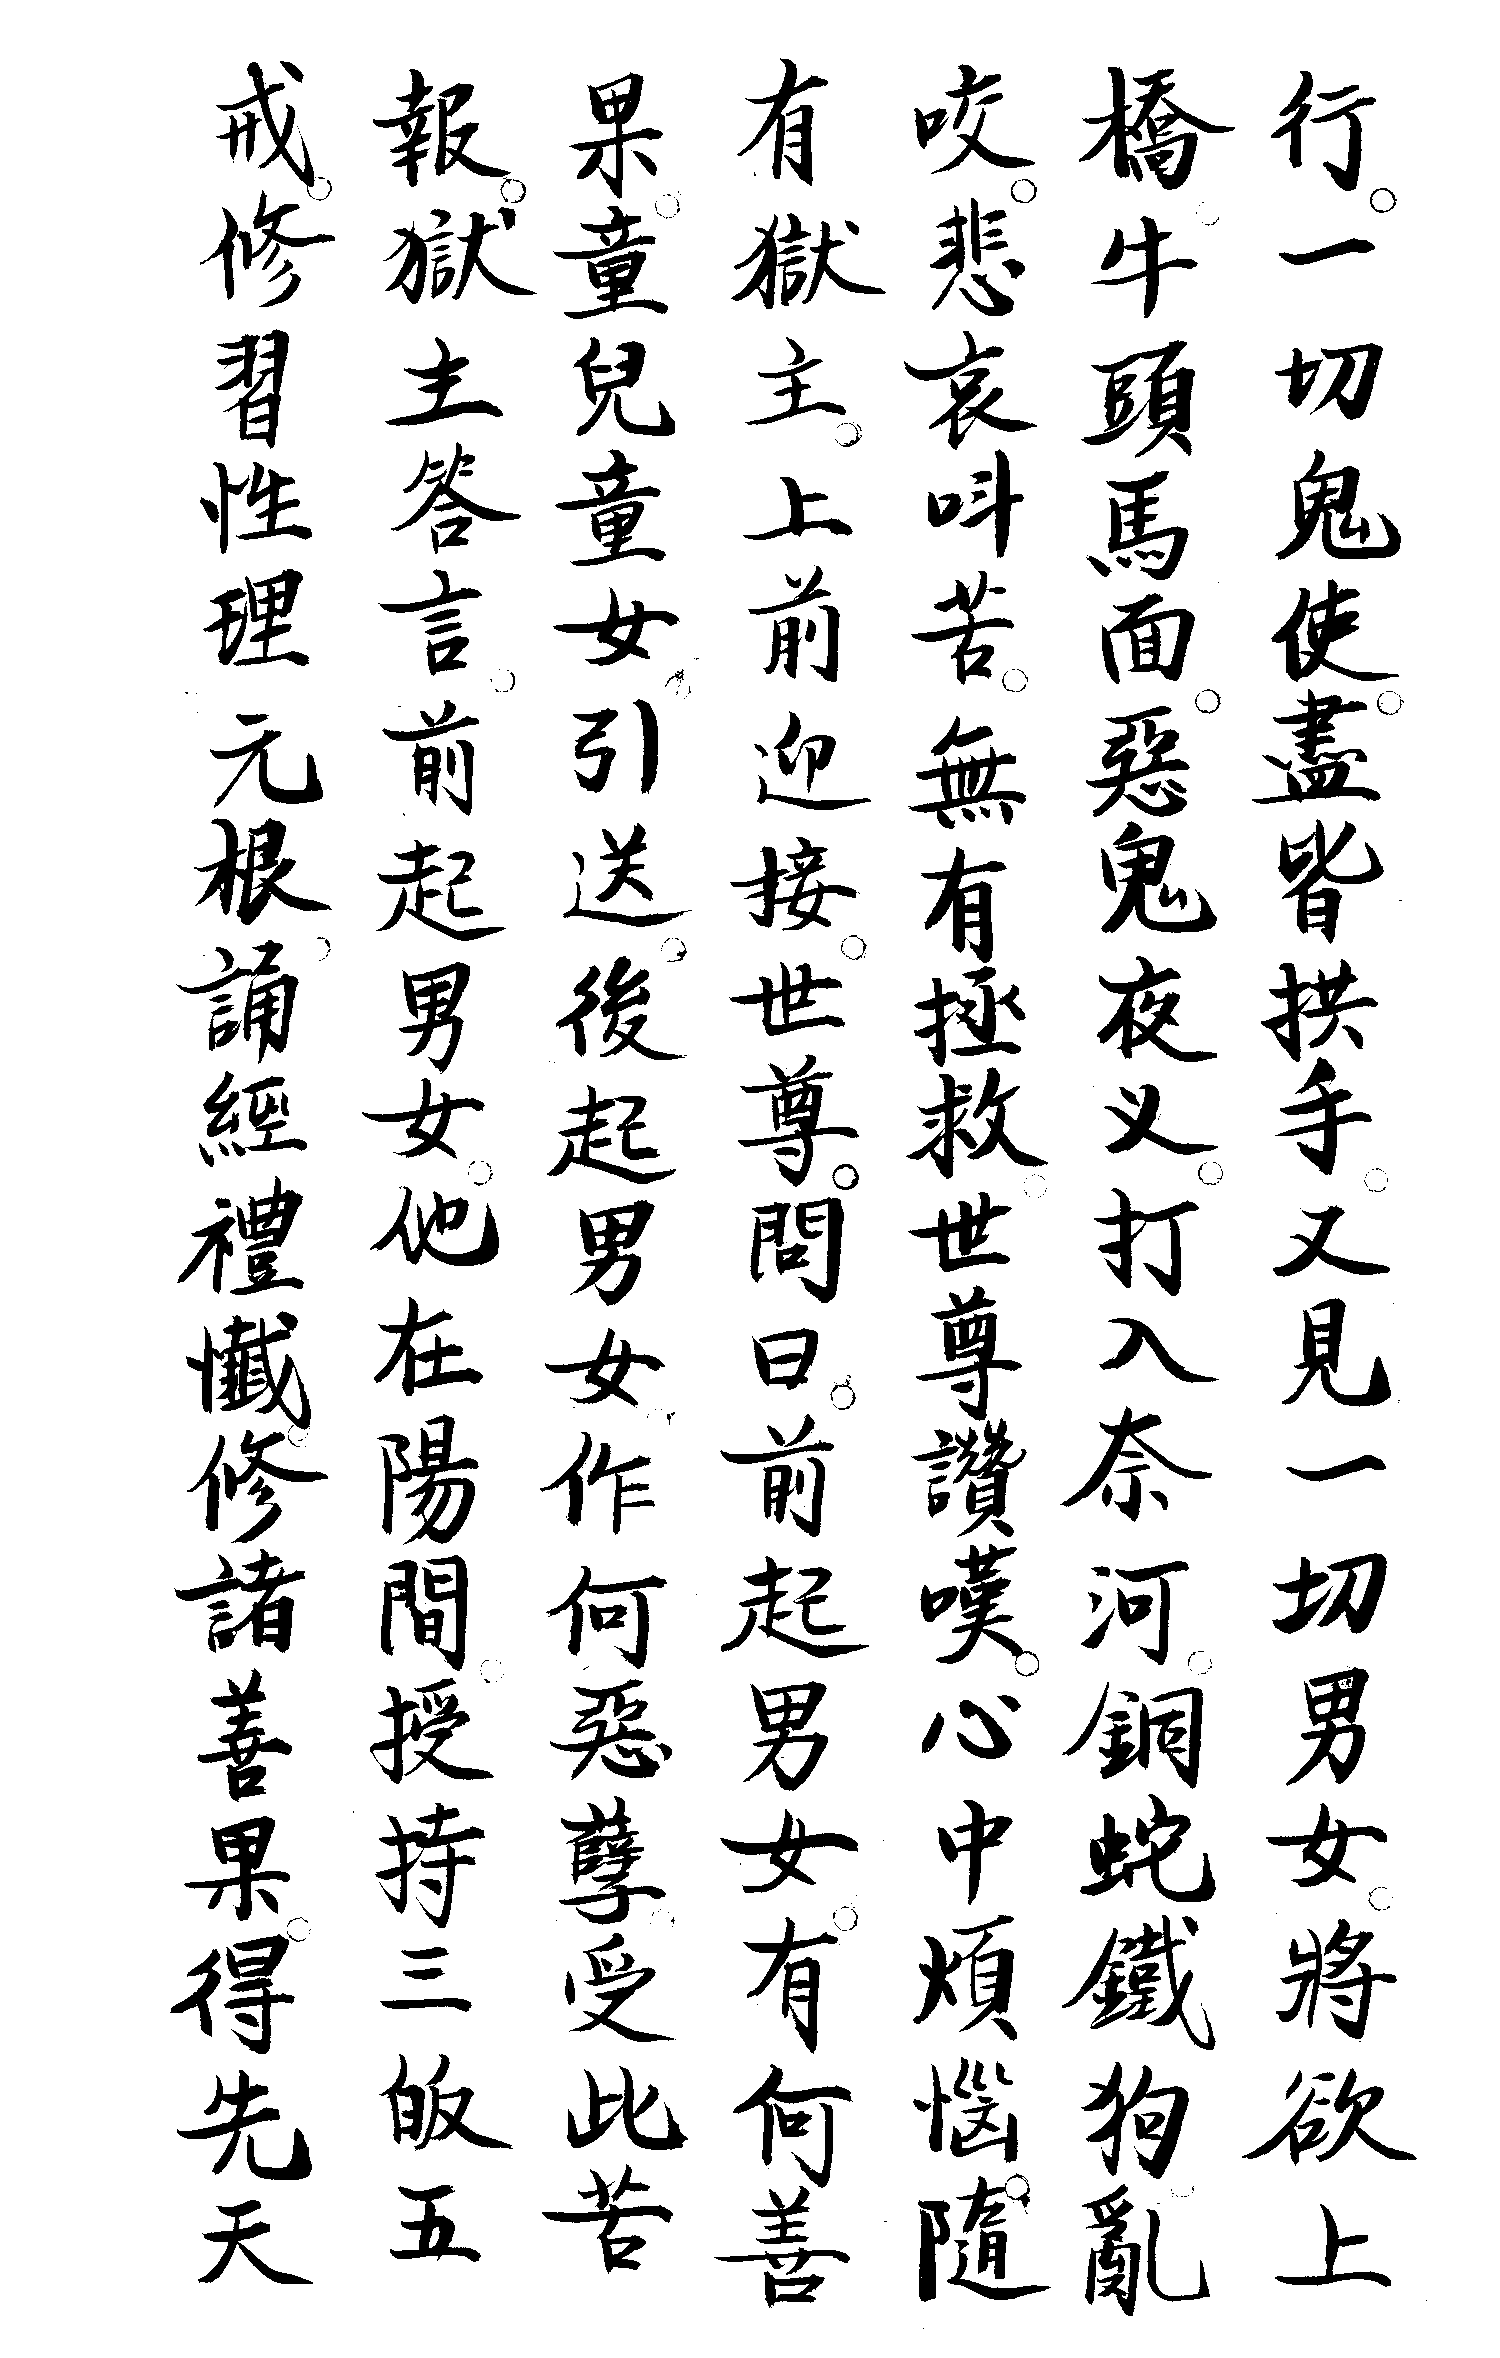 行。一切鬼使。盡皆拱手。又見一切男女。將欲上
橋。牛頭馬面。惡鬼夜义。打入奈河。銅蛇鐵狗。亂
咬。悲哀呌苦。無有拯救。世尊讚嘆。心中煩惱。隨
有獄主。上前迎接。世尊。問曰。前起男女。有何善
果。童兒童女。引送。後起男女。作何惡孽。受此苦
報。獄主答言。前起男女。他在陽間。授持三皈五
戒。修習性理元根。誦經禮懺。修諸善果。得先天